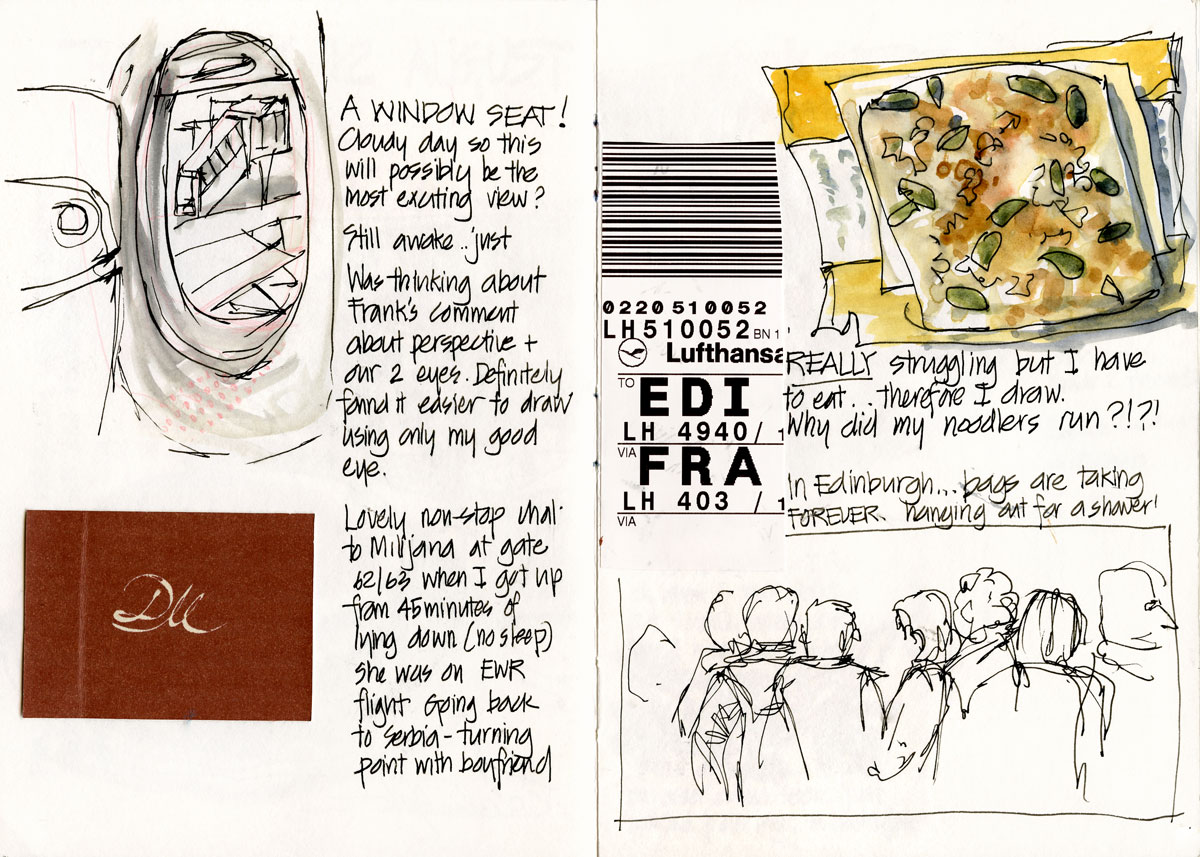 A WINDOW SEAT!
Cloudy day so this
will possibly be the
most exciting view?
Still awake.. just
Was thinking about
Frank's comment
about perspective +
our 2 eyes. Definitely
found it easier to draw
using only my good
eye.
Lovely non-stop chat
to Miljana at gate
62/63 when I got up
from 45 minutes of
lying down (no sleep)
she was on EWR
flight Going back
to Serbia - turning
point with boyfriend
DM
0220 510052
LH510052 BN 1
Lufthansa
TO EDI
LH 4940/ 1
VIA FRA
LH 403 / 1
VIA
REALLY struggling but I have
to eat... therefore I draw.
Why did my noodlers run?!?!
In Edinburgh... bags are taking
FOREVER. hanging out for a shower!